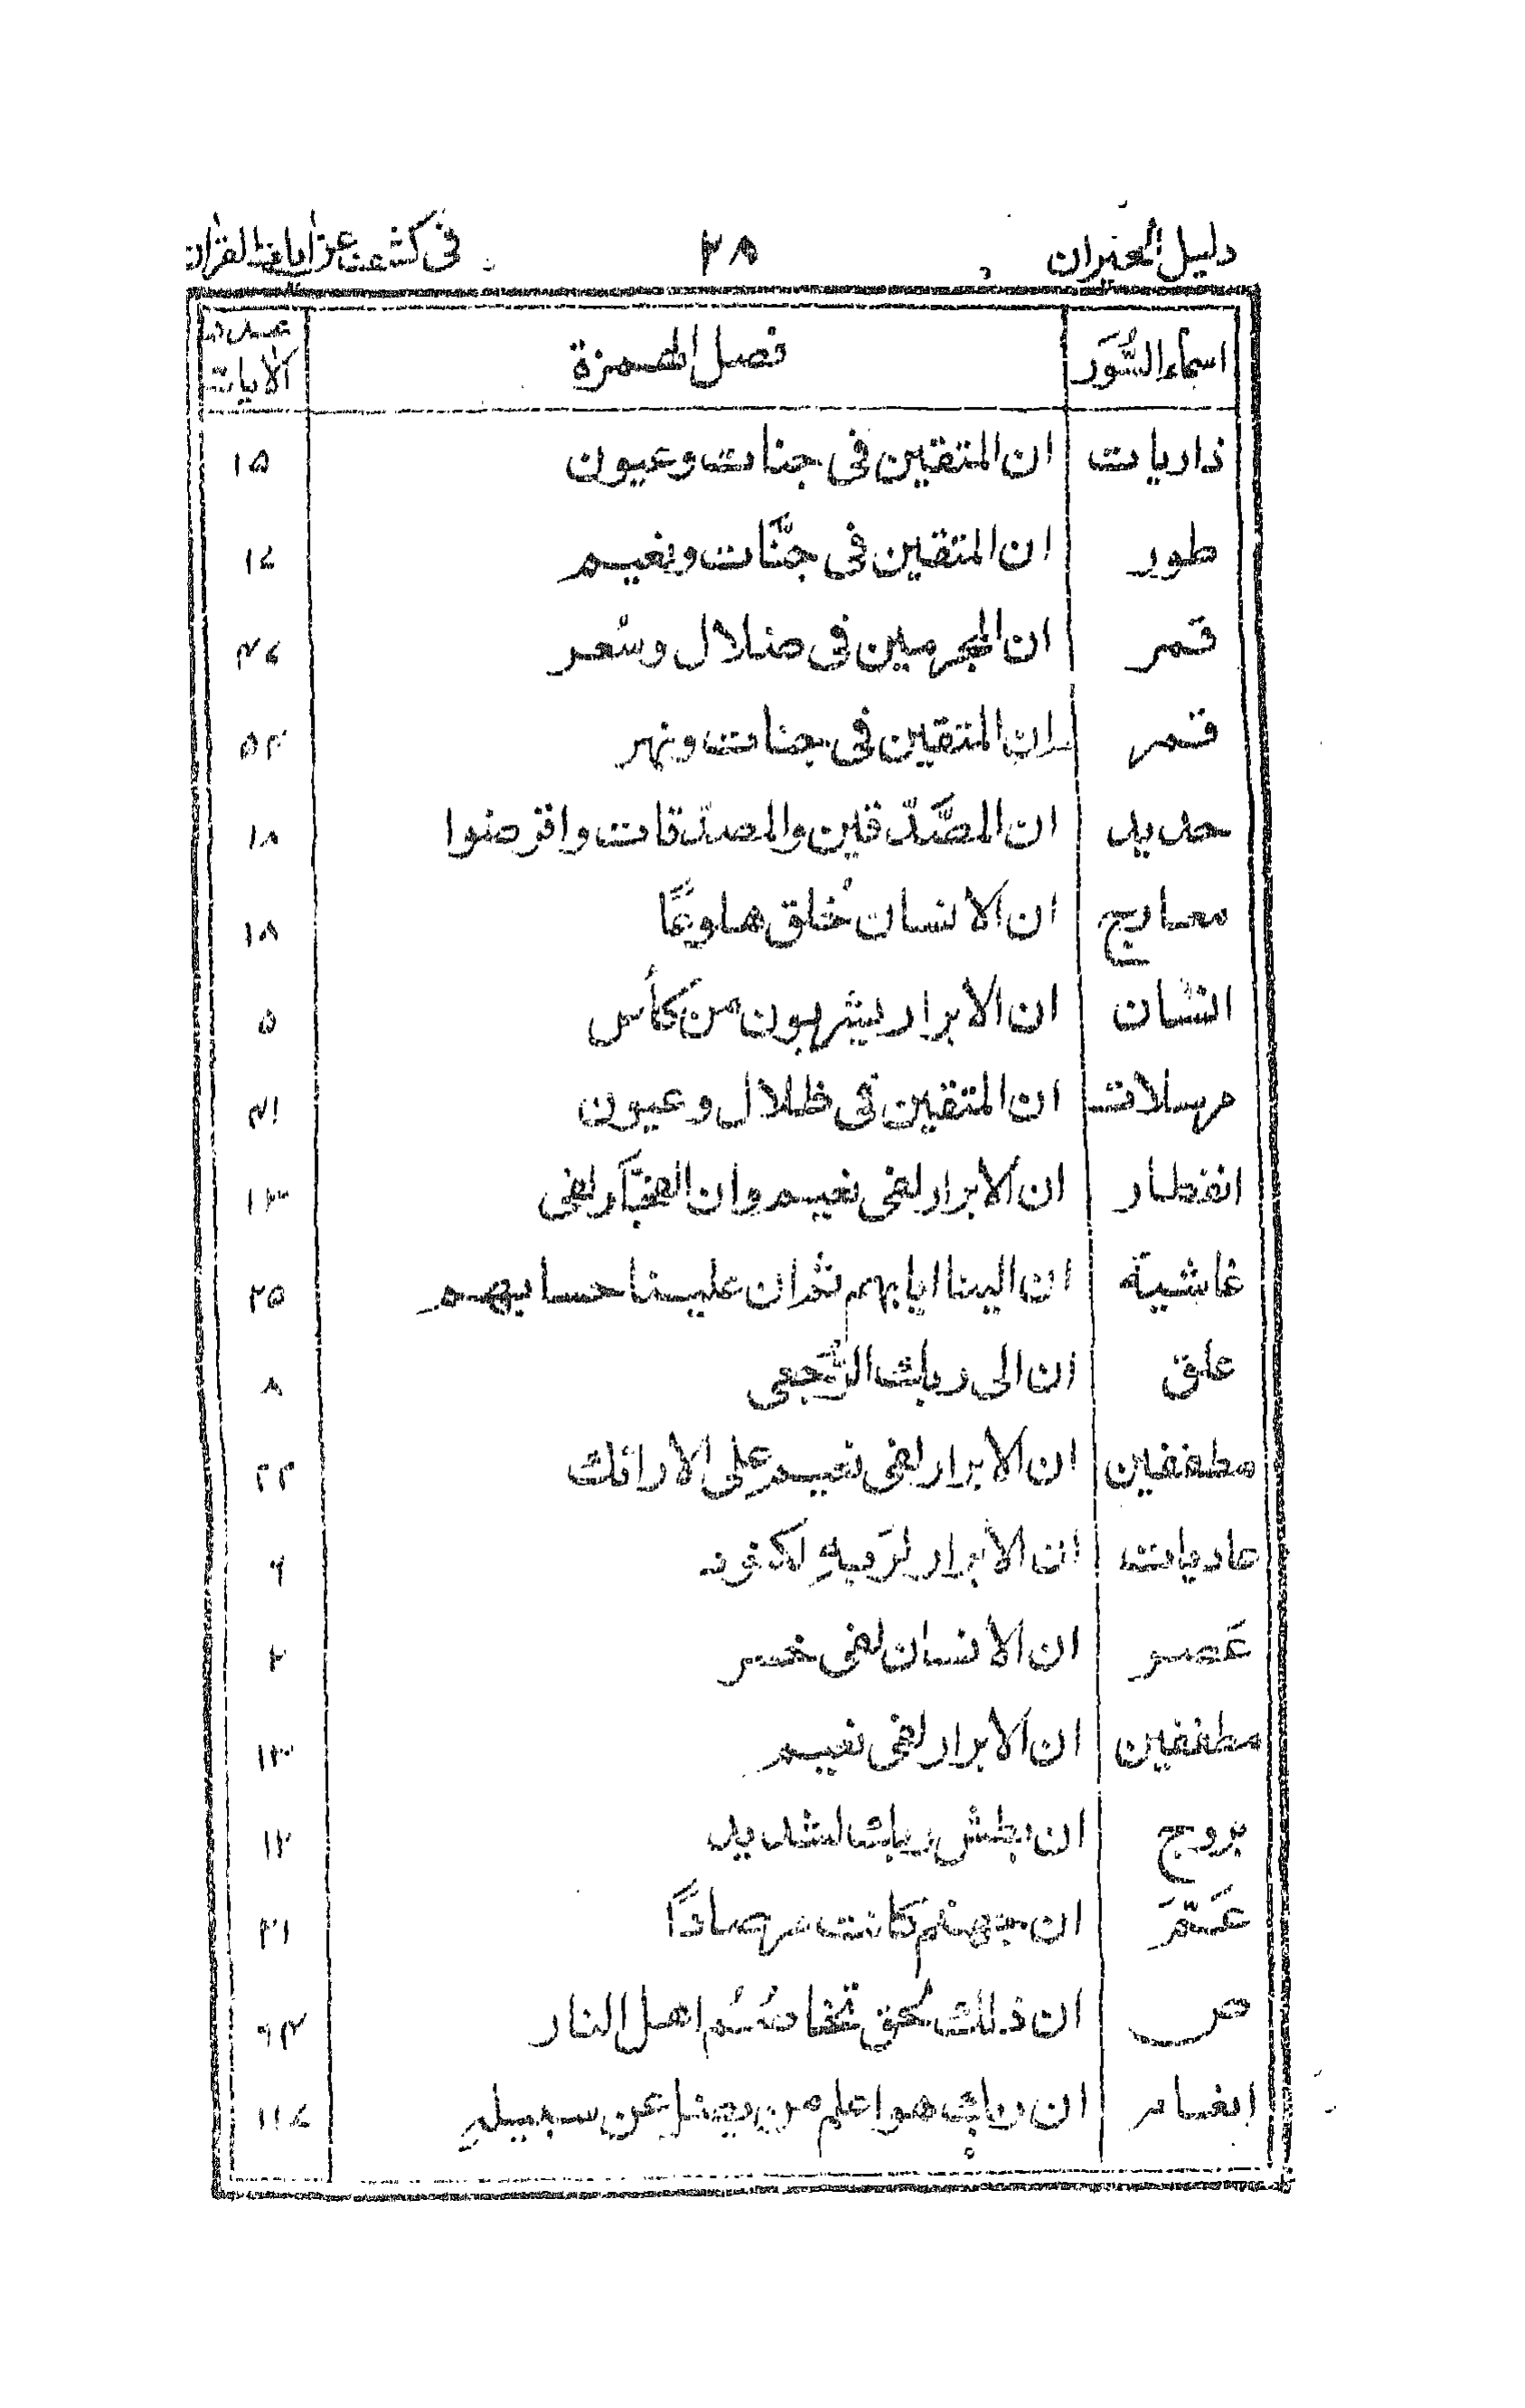 دليل الحيران ٢٨ فى كشف عن آيات القرآن
اسماء السُّوَر فصل الهمزة عدد الآيات
ذاريات ان المتقين فى جنات وعيون ١٥
طور ان المتقين فى جنّٰت ونعيم ١٧
قمر ان المجرمين فى ضلال وسُعر ٤٧
قمر ان المتقين فى جنات ونهر ٥٤
حديد ان المصَّدّقين والمصدّقات واقرضوا ١٨
معارج ان الانسان خُلق هلوعًا ١٨
انسان ان الابرار يشربون من كأس ٥
مرسلات ان المتقين فى ظلال وعيون ٤١
انفطار ان الابرار لفى نعيم وان الفجّار لفى ١٣
غاشية ان الينا ايابهم ثم ان علينا حسابهم ٢٥
علق ان الى ربك الرُّجعى ٨
مطففين ان الابرار لفى نعيم على الارائك ٢٢
عاديات ان الابرار لرَبهِ لكنود ٦
عَصر ان الانسان لفى خسر ٢
مطففين ان الابرار لفى نعيم ١٣
بروج ان بطش ربك لشديد ١٢
عَمَّ ان جهنم كانت مرصادًا ٢١
ص ان ذلك لحق تخاصُمُ اهل النار ٦٤
انعام ان ربك هو اعلم من يضل عن سبيلهِ ١١٧